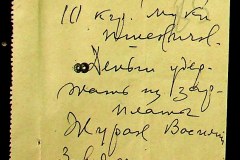 10 кгр. муки
пшеничн.
Деньги удер-
жать из зар-
платы
Журав Василий